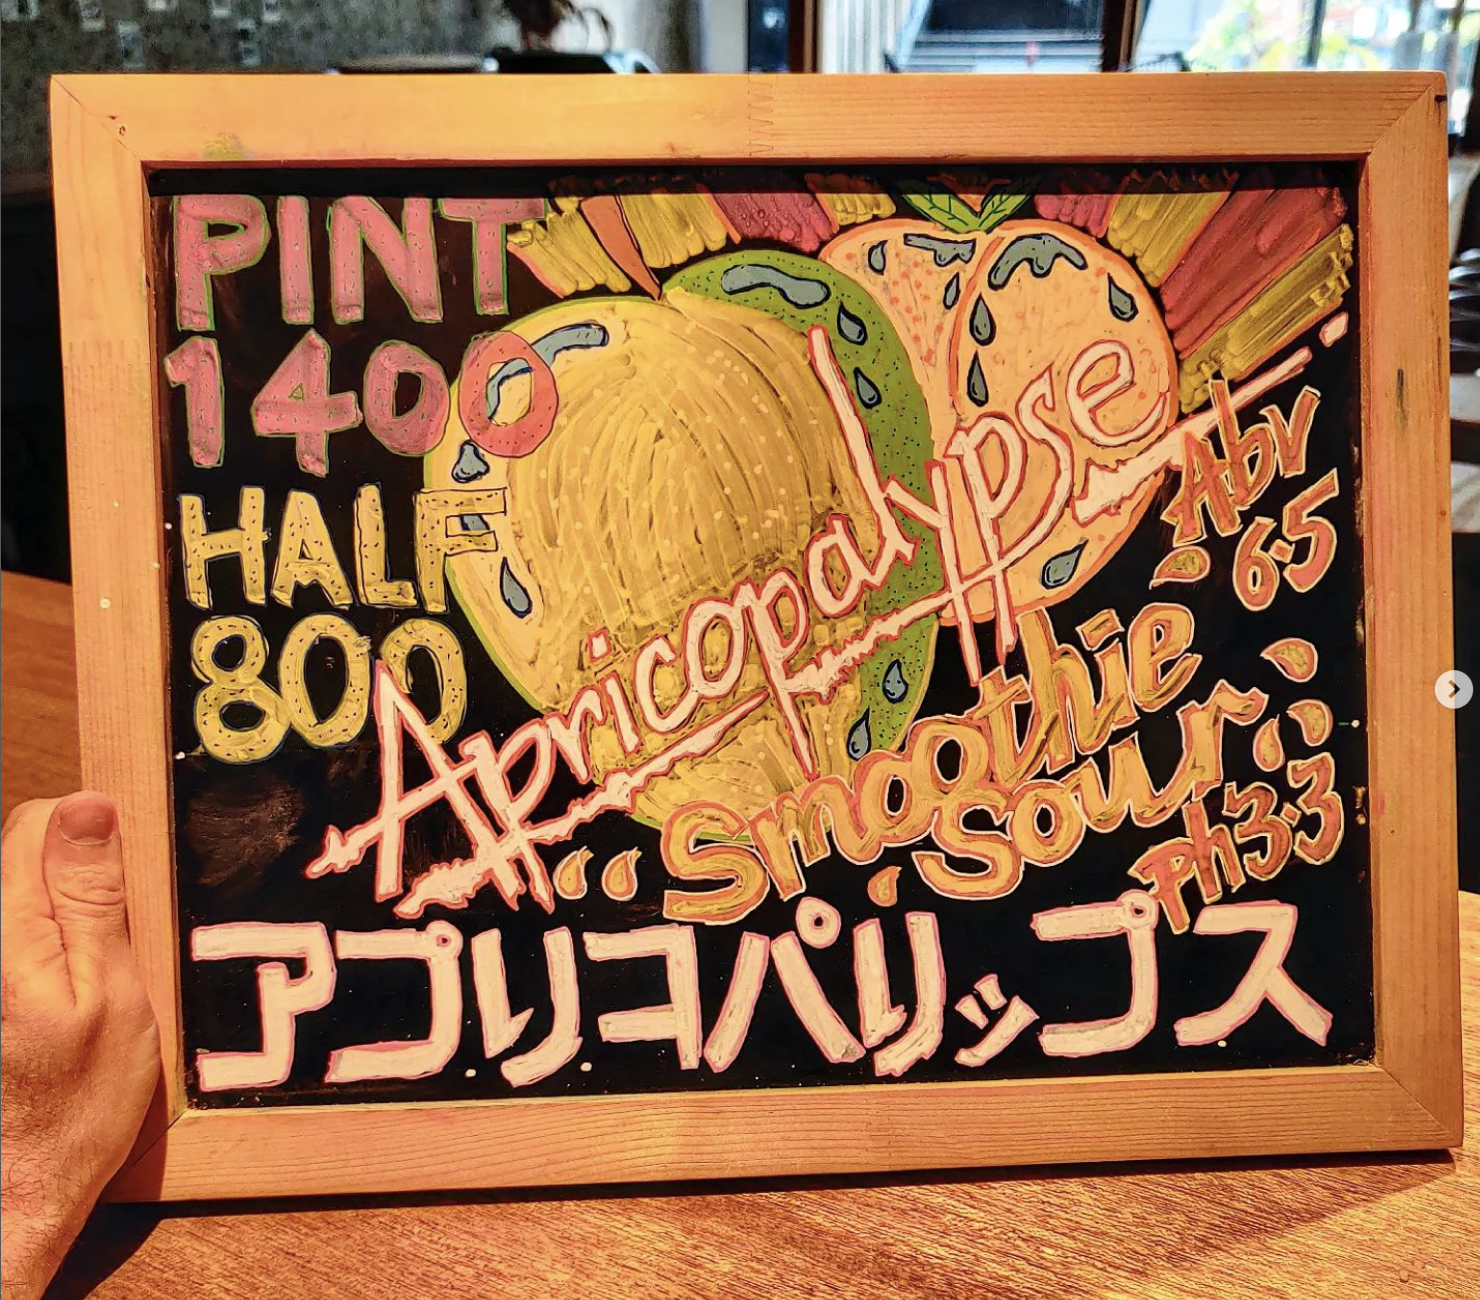 PINT
1400
HALF
800
Apricopalypse
Abv
6.5
Smoothie
Sour
Ph3.3
アプリコパリップス